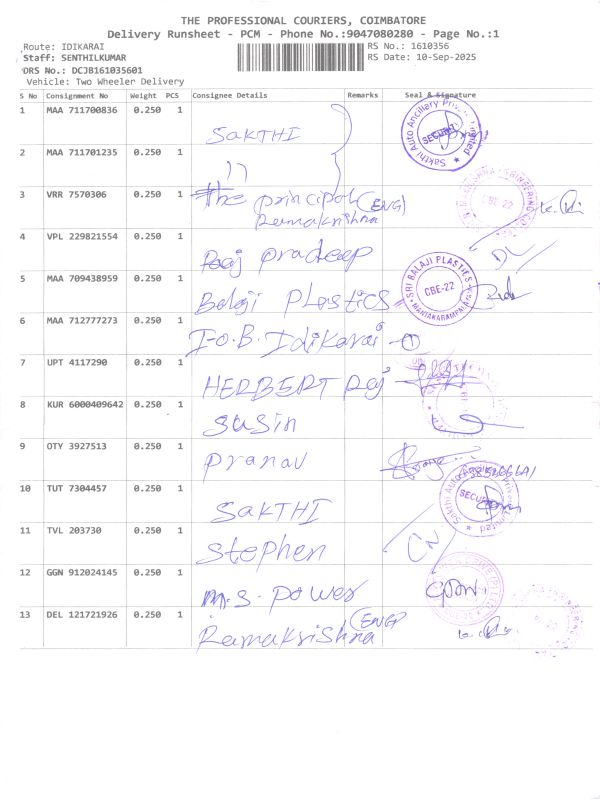 THE PROFESSIONAL COURIERS, COIMBATORE
Delivery Runsheet - PCM - Phone No.:9047080280 - Page No.:1
Route: IDIKARAI
RS No.: 1610356
Staff: SENTHILKUMAR
RS Date: 10-Sep-2025
DRS No.: DCJB161035601
Vehicle: Two Wheeler Delivery
S No Consignment No Weight PCS Consignee Details Remarks Seal & Signature
1 MAA 711700836 0.250 1 SAKTHI
Sakthi Auto Ancillary Private Limited
SECURITY
2 MAA 711701235 0.250 1 "
3 VRR 7570306 0.250 1 The principal (ENG)
Ramakrishna
CBE-22
4 VPL 229821554 0.250 1 Raj pradeep
5 MAA 709438959 0.250 1 Balaji Plastics
SRI BALAJI PLASTICS
CBE-22
MANIAKARAMPALAYAM
6 MAA 712777273 0.250 1 I-O.B. Idikarai -①
7 UPT 4117290 0.250 1 HERBERT Raj
8 KUR 6000409642 0.250 1 Susin
9 OTY 3927513 0.250 1 Pranav
10 TUT 7304457 0.250 1 SAKTHI
Sakthi Auto Ancillary Private Limited
SECURITY
11 TVL 203730 0.250 1 Stephen
12 GGN 912024145 0.250 1 M.S. Power
13 DEL 121721926 0.250 1 Ramakrishna (ENG)